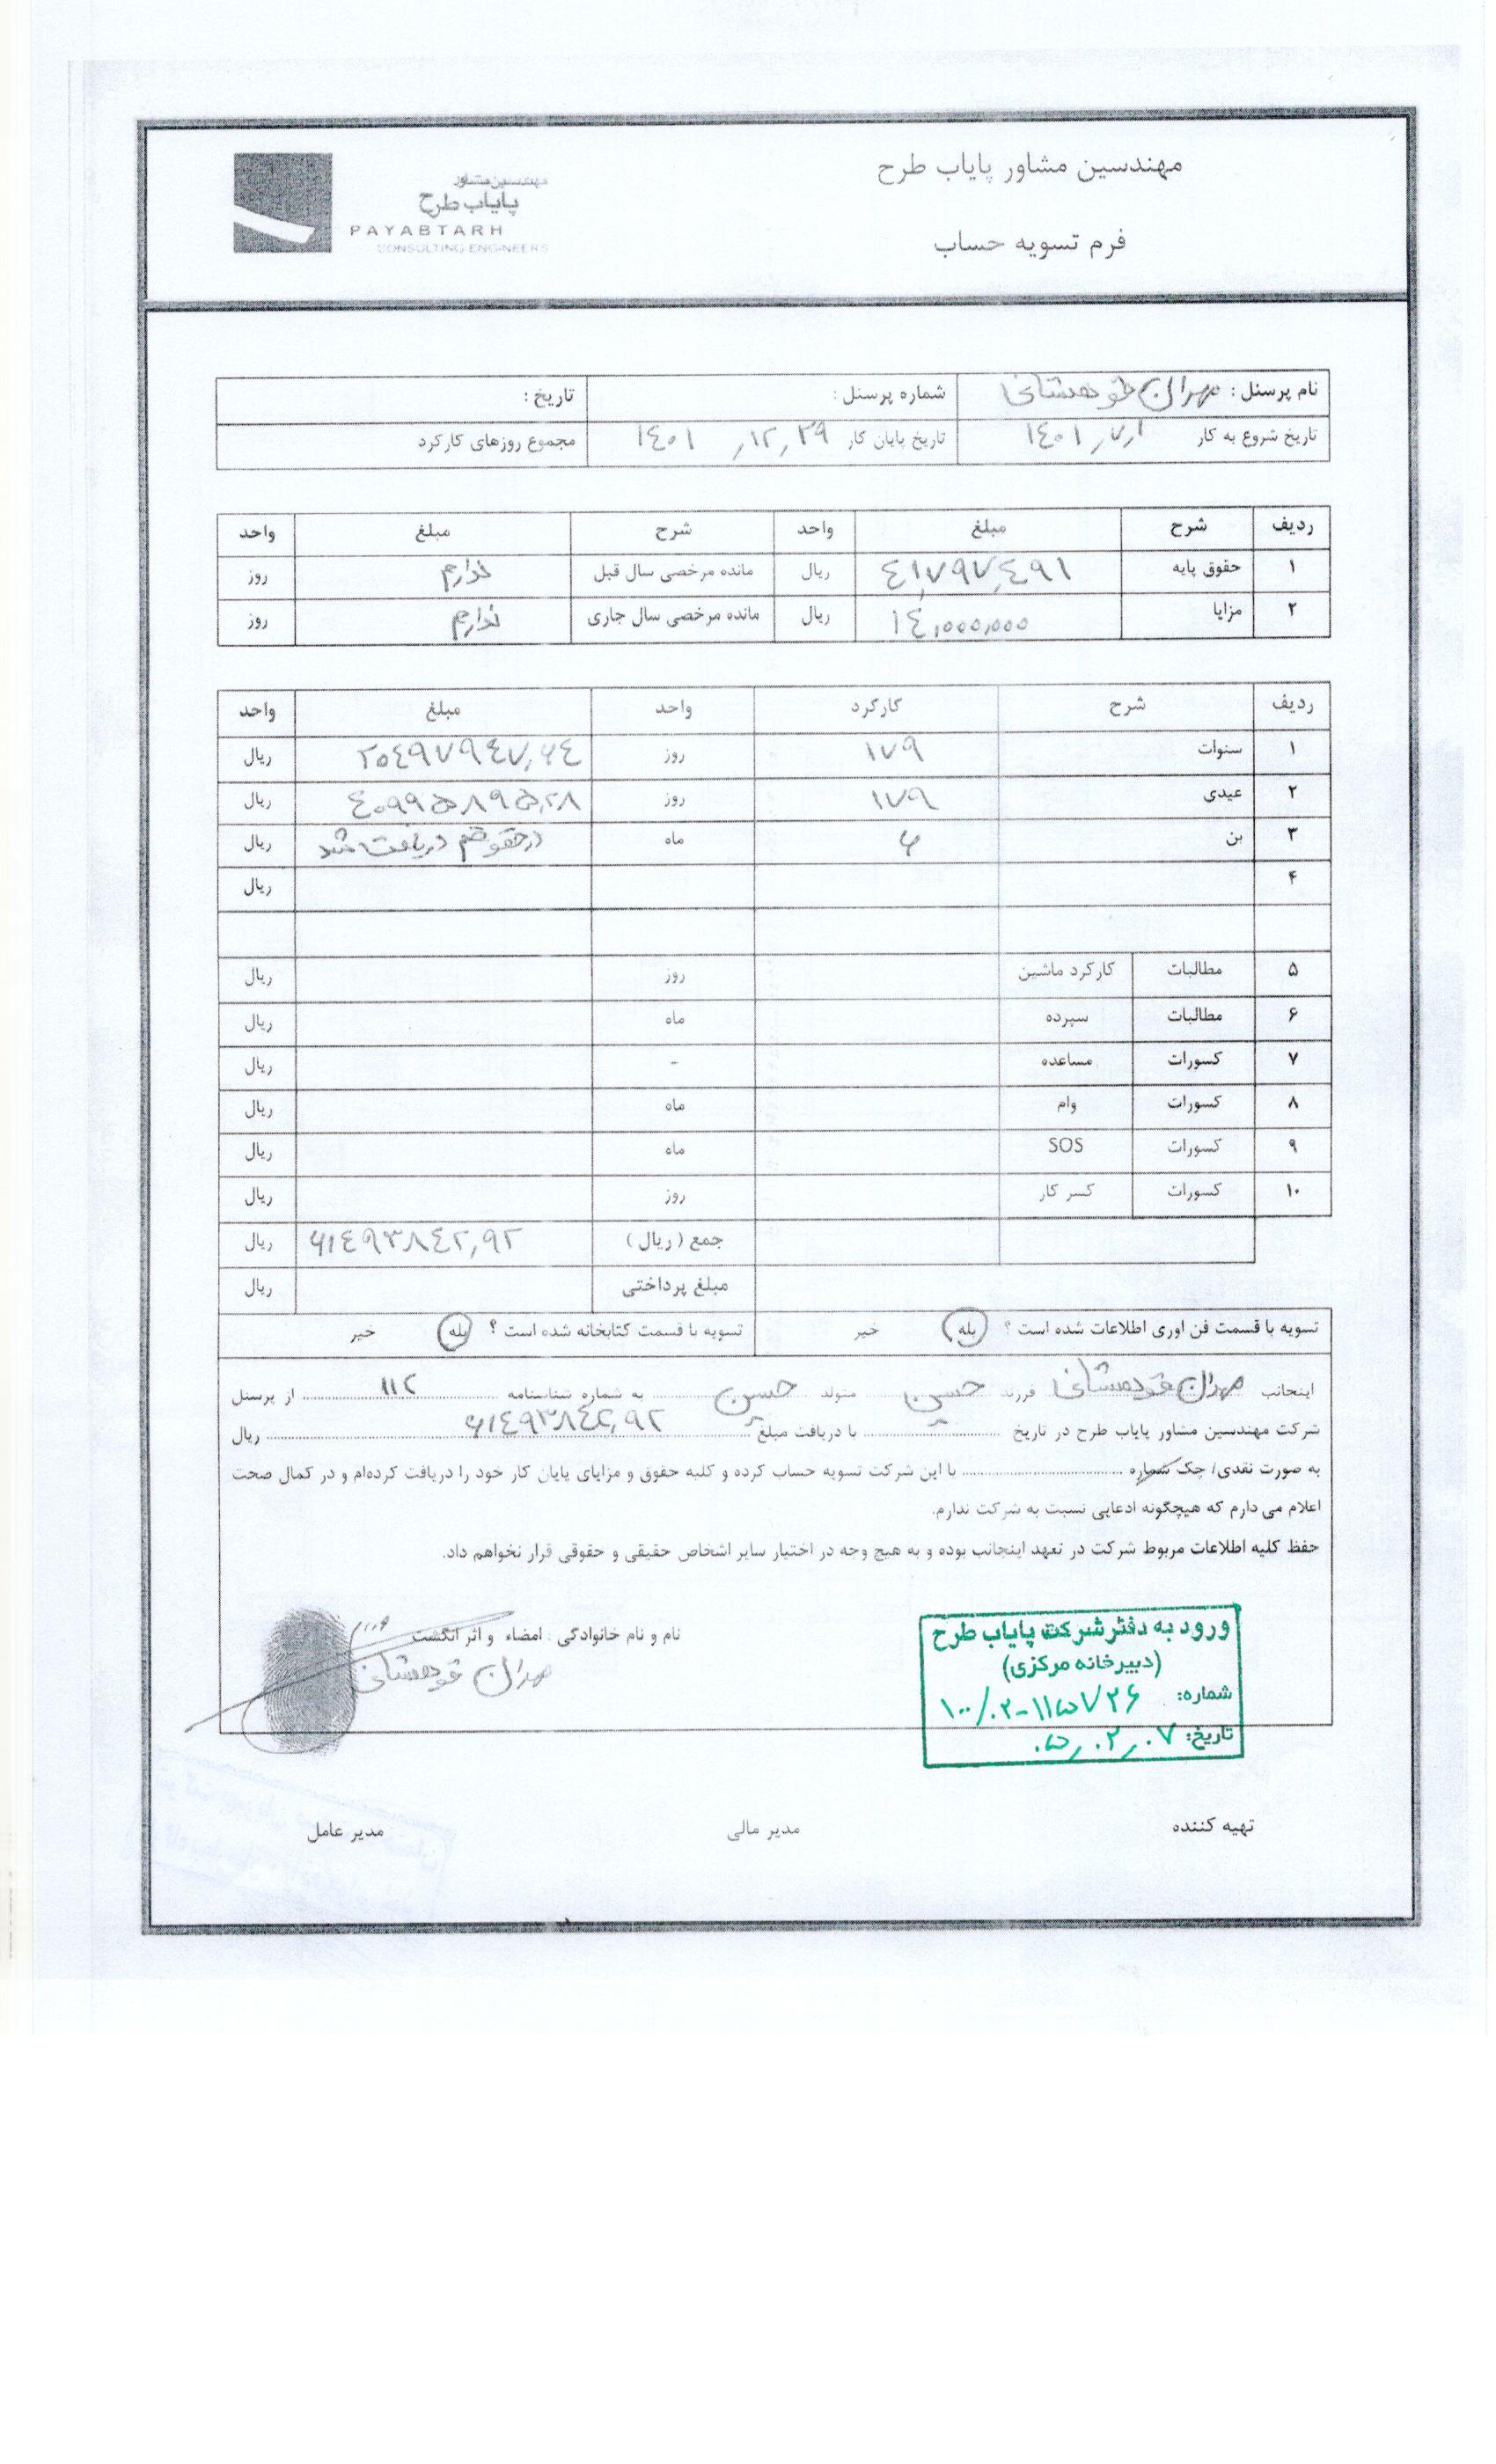 مهندسین مشاور پایاب طرح
فرم تسویه حساب
مهندسین مشاور
پایاب طرح
PAYABTARH
CONSULTING ENGINEERS
نام پرسنل : مهران شماره پرسنل : تاریخ :
تاریخ شروع به کار ۱٤۰۱٫۷٫۱ تاریخ پایان کار ۱٤۰۱٫۱۲٫۲۹ مجموع روزهای کارکرد
ردیف شرح مبلغ واحد شرح مبلغ واحد
۱ حقوق پایه ٤۱٫۷۹۷٫٤۹۱ ریال مانده مرخصی سال قبل ندارم روز
۲ مزایا ۱٤٫۰۰۰٫۰۰۰ ریال مانده مرخصی سال جاری ندارم روز
ردیف شرح کارکرد واحد مبلغ واحد
۱ سنوات ۱۷۹ روز ۲۰٤۹۷۹٤۷٫۶٤ ریال
۲ عیدی ۱۷۹ روز ٤۰۹۹۵۸۹۵٫۲۸ ریال
۳ بن ۶ ماه درحقوقم دریافت شد ریال
۴ ریال
۵ مطالبات کارکرد ماشین روز ریال
۶ مطالبات سپرده ماه ریال
۷ کسورات مساعده - ریال
۸ کسورات وام ماه ریال
۹ کسورات SOS ماه ریال
۱۰ کسورات کسر کار روز ریال
جمع (ریال) ۶۱٤۹۳۸٤۲٫۹۲ ریال
مبلغ پرداختی ریال
تسویه با قسمت فن اوری اطلاعات شده است ؟ بله خیر تسویه با قسمت کتابخانه شده است ؟ بله خیر
اینجانب مهران فرزند حسین متولد حسین به شماره شناسنامه ۱۱۲ از پرسنل
شرکت مهندسین مشاور پایاب طرح در تاریخ با دریافت مبلغ ۶۱٤۹۳۸٤۲٫۹۲ ریال
به صورت نقدی/ چک شماره با این شرکت تسویه حساب کرده و کلیه حقوق و مزایای پایان کار خود را دریافت کرده‌ام و در کمال صحت
اعلام می دارم که هیچگونه ادعایی نسبت به شرکت ندارم.
حفظ کلیه اطلاعات مربوط شرکت در تعهد اینجانب بوده و به هیچ وجه در اختیار سایر اشخاص حقیقی و حقوقی قرار نخواهم داد.
نام و نام خانوادگی . امضاء و اثر انگشت
مهران
ورود به دفتر شرکت پایاب طرح
(دبیرخانه مرکزی)
شماره: ۱۰۰/۰۲-۱۱۵۷۲۶
تاریخ: ۰۵٫۰۲٫۰۷
تهیه کننده مدیر مالی مدیر عامل